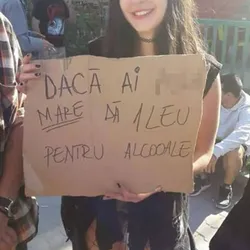 DACĂ AI
MARE DĂ 1 LEU
PENTRU ALCOOALE